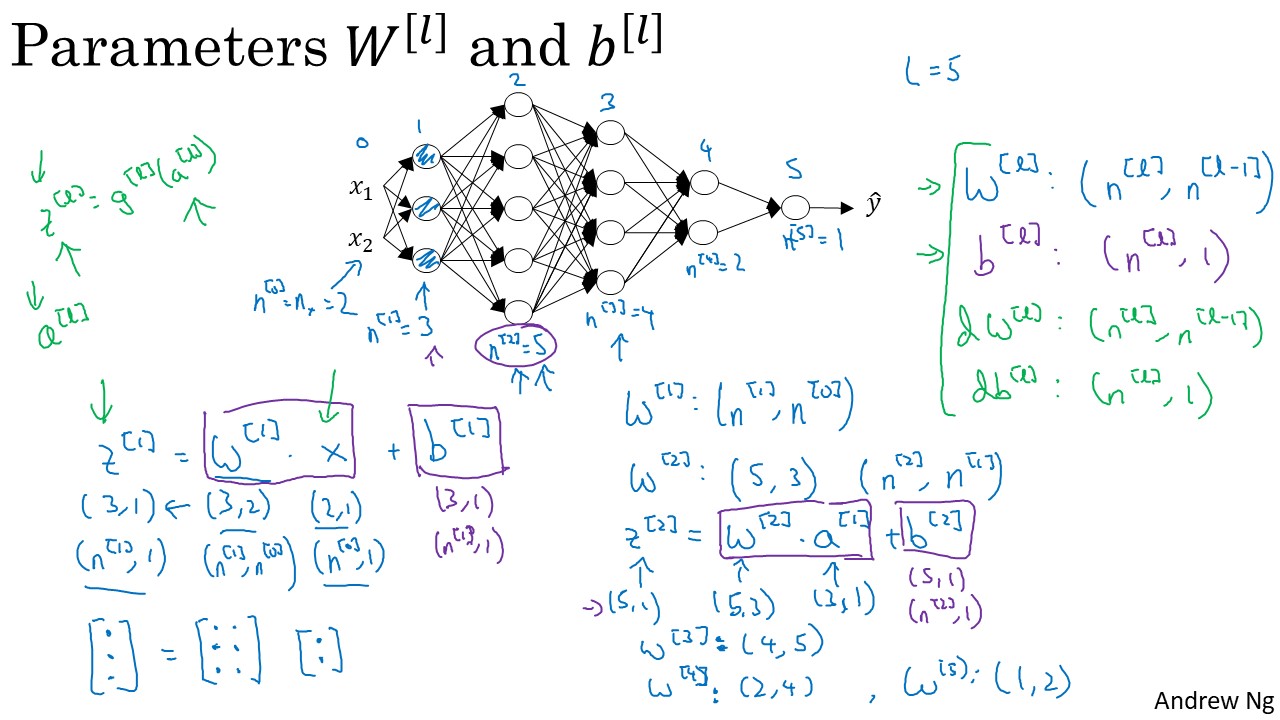 Parameters W^[l] and b^[l]
L = 5
0
1
2
3
4
5
x₁
x₂
ŷ
n^[0] = nₓ = 2
n^[1] = 3
n^[2] = 5
n^[3] = 4
n^[4] = 2
n^[5] = 1
↓
z^[l] = g^[l](a^[l])
↑ ↑
↓
a^[l]
→ W^[l] : (n^[l], n^[l-1])
→ b^[l] : (n^[l], 1)
dW^[l] : (n^[l], n^[l-1])
db^[l] : (n^[l], 1)
z^[1] = W^[1] · x + b^[1]
(3,1) ← (3,2) (2,1) (3,1)
(n^[1], 1) (n^[1], n^[0]) (n^[0], 1) (n^[1], 1)
[⋮] = [⋮ ⋮] [:]
W^[1] : (n^[1], n^[0])
W^[2] : (5, 3) (n^[2], n^[1])
z^[2] = W^[2] · a^[1] + b^[2]
→ (5,1) (5,3) (3,1) (5,1)
(n^[2], 1)
W^[3] : (4, 5)
W^[4] : (2, 4) , W^[5] : (1, 2)
Andrew Ng